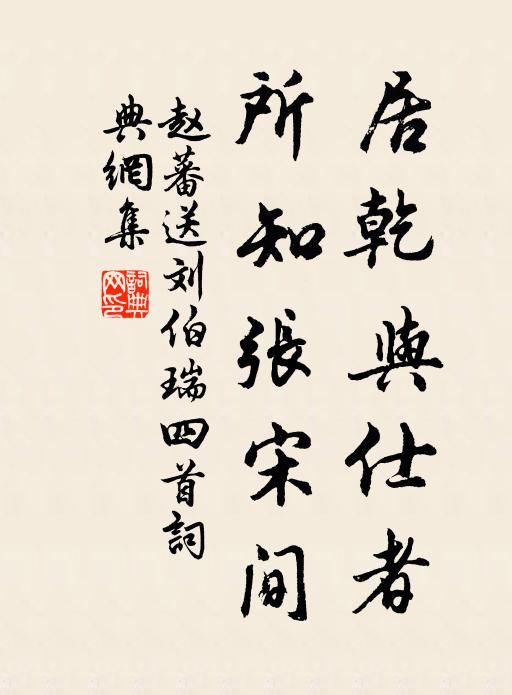 居乾與仕者
所知張宋间
赵蕃送刘伯瑞四首詞
典網集
詞典
网印